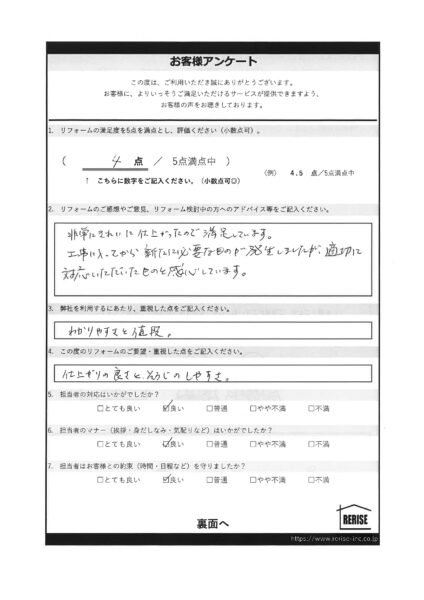 お客様アンケート
この度は、ご利用いただき誠にありがとうございます。
お客様に、よりいっそうご満足いただけるサービスが提供できますよう、
お客様の声をお聴きしております。
1. リフォームの満足度を5点を満点とし、評価ください（小数点可）。
（ 4 点 ／ 5点満点中 ）
（例） 4.5 点/5点満点中
↑ こちらに数字をご記入ください。（小数点可◎）
2. リフォームのご感想やご意見、リフォーム検討中の方へのアドバイス等をご記入ください。
非常にきれいに仕上がったので満足しています。
工事に入ってから新たに必要なものが発生しましたが、適切に
対応いただいたものと感心しています。
3. 弊社を利用するにあたり、重視した点をご記入ください。
わかりやすさと値段。
4. この度のリフォームのご要望・重視した点をご記入ください。
仕上がりの良さと、そうじのしやすさ。
5. 担当者の対応はいかがでしたか？
□とても良い ☑良い □普通 □やや不満 □不満
6. 担当者のマナー（挨拶・身だしなみ・気配りなど）はいかがでしたか？
□とても良い ☑良い □普通 □やや不満 □不満
7. 担当者はお客様との約束（時間・日程など）を守りましたか？
□とても良い ☑良い □普通 □やや不満 □不満
裏面へ
RERISE
https://www.rerise-inc.co.jp